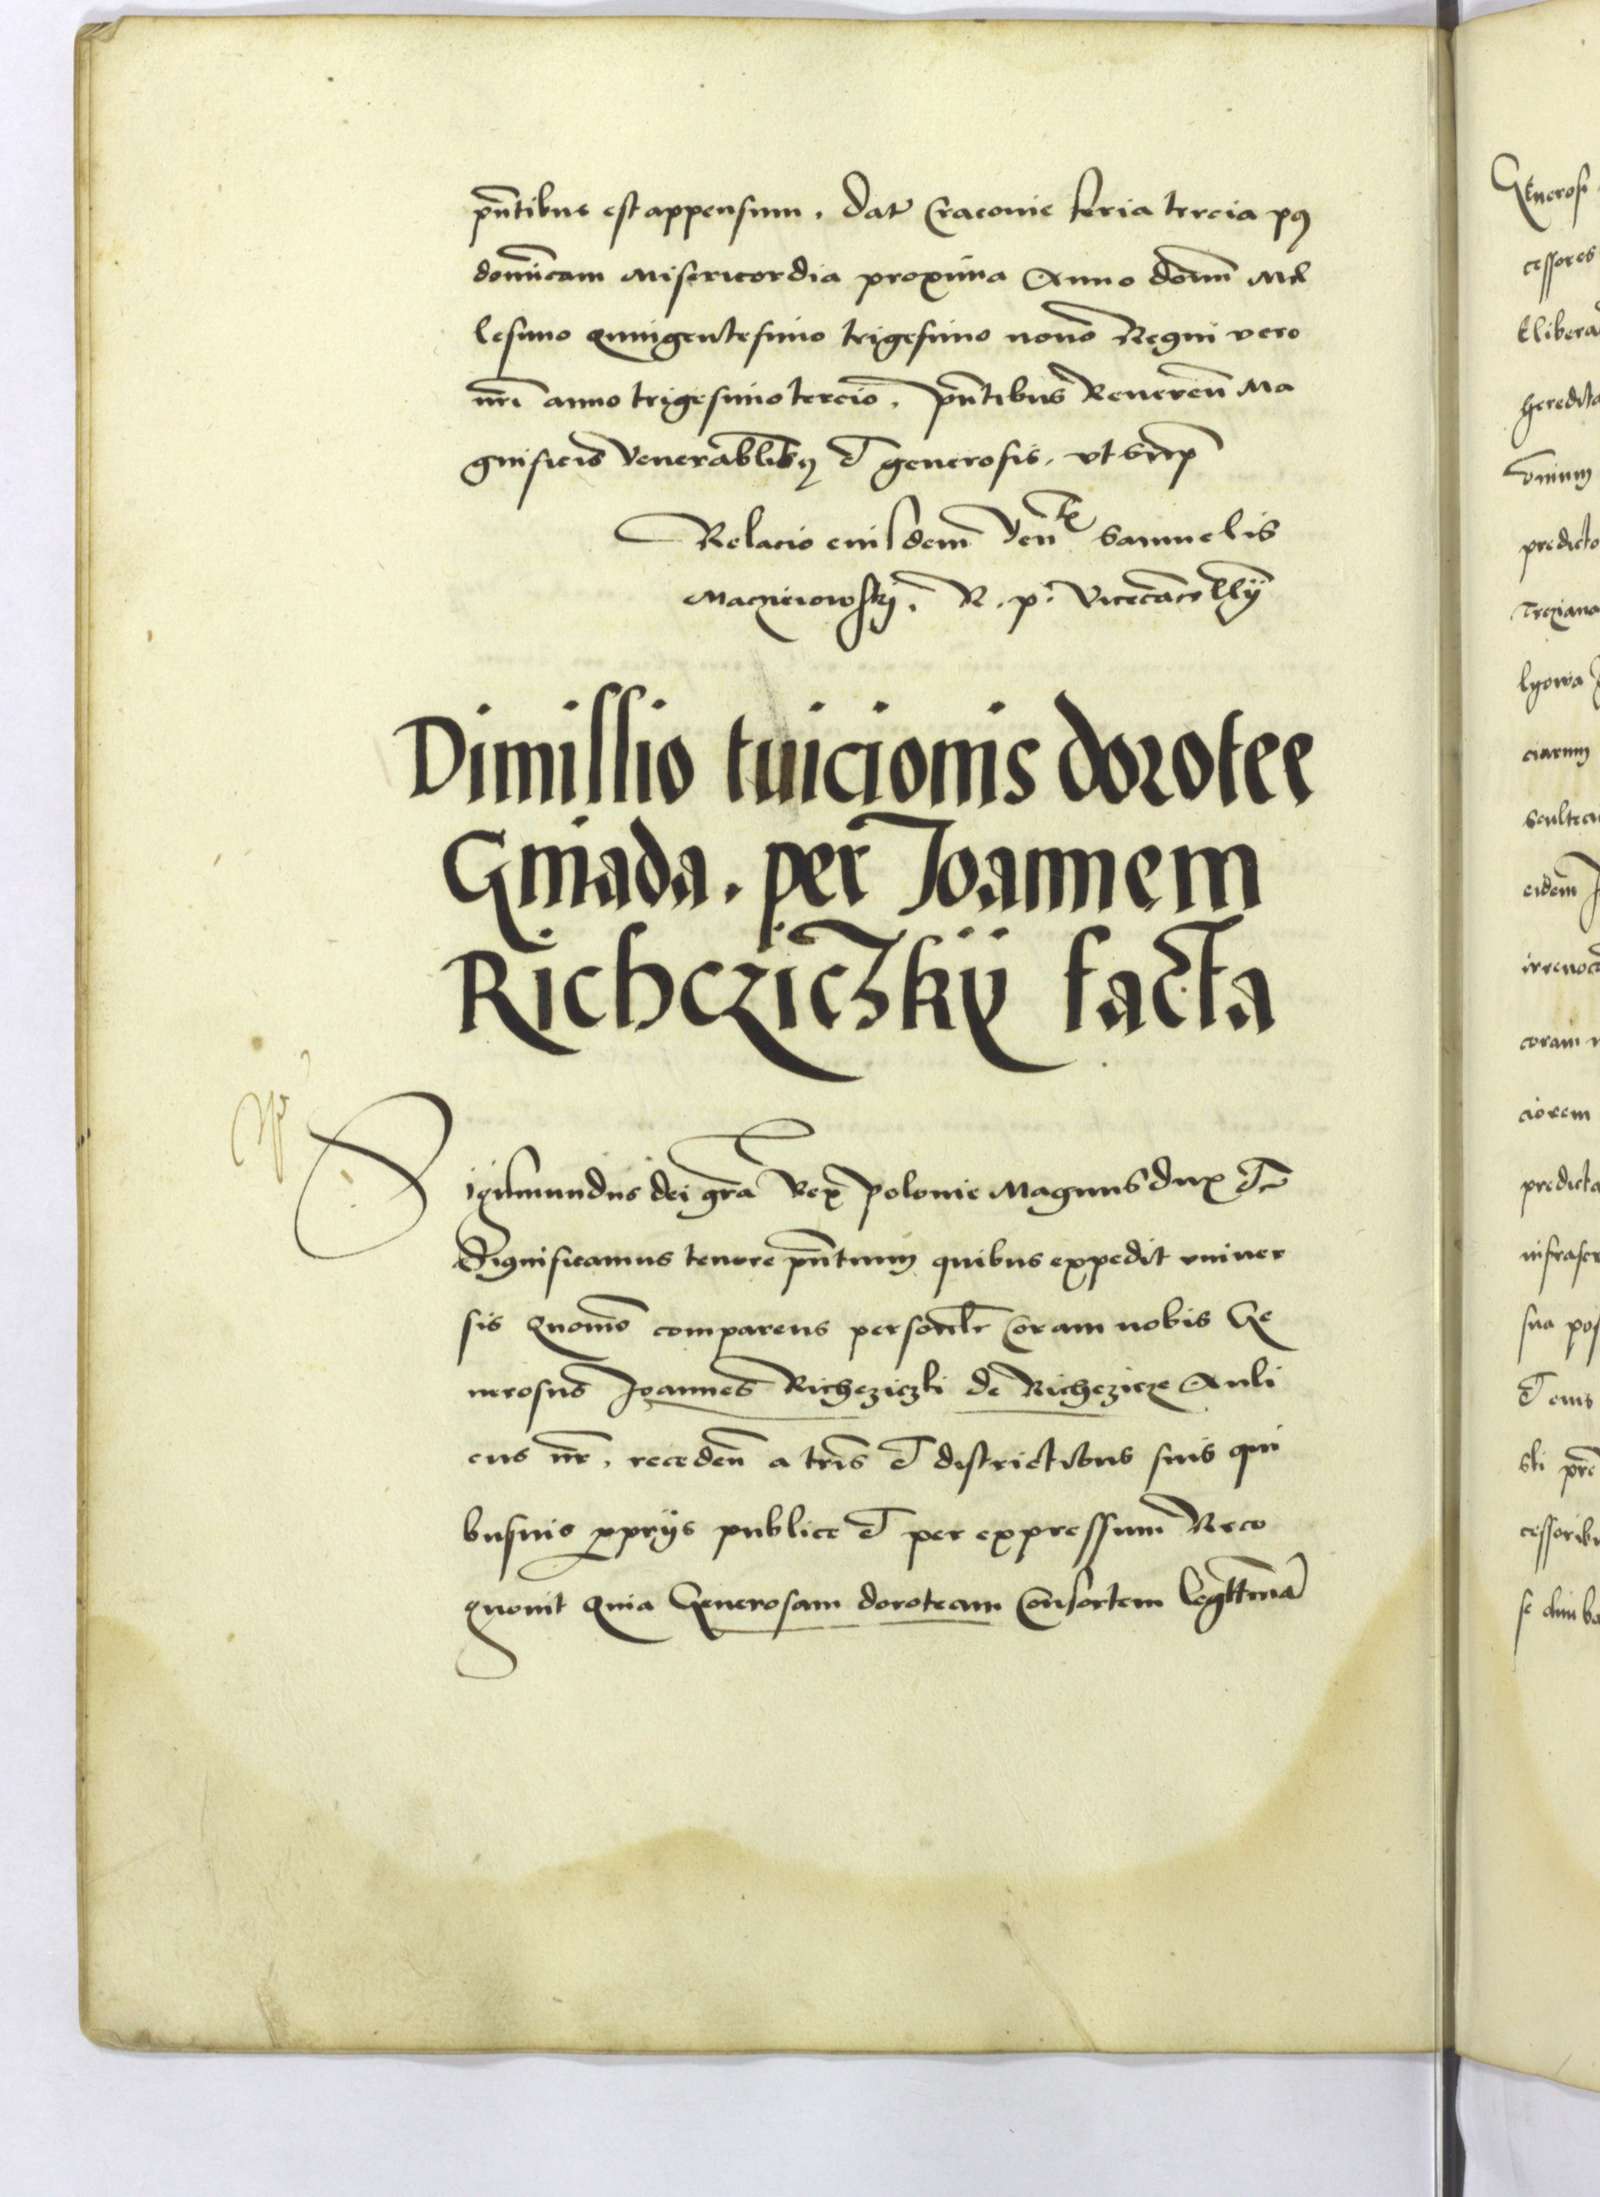 pñtibus est appensum. Dat Cracouie feria tercia pꝯ
dominicam Misericordia proxima Anno domi Mil
lesimo Quingentesimo trigesimo nono Regni vero
nr̃i anno trigesimo tercio. pñtibus Reueren̄ Ma
gnificis Venerablibꝯ et generosis. vt Supͣ
Relacio eiusdem Ven̄ Samuelis
Maczieiowskÿ. R. p. Vicecancellÿ
Dimissio tuicionis dorotee
Gniada. per Joannem
Richcziczkÿ facta
Sigismundus dei gr̃a Rex Polonie Magnus dux etc̃
Significamus tenore pñtium quibus expedit vniuer
sis Quomo comparens personalr̃ Coram nobis Ge
nerosus Joannes Richcziczki de Richczicze Auli
cus nr̃. receden̄ a tr̃is et districtibus suis qui
busuis pprÿs publice et per expressum Reco
gnouit Quia Generosam doroteam Consortem legittimã
Generosi
cessores
Elibera
heredita
omnium
predicto
ciarum
eidem J
irreuoca
coram n
ciorem
predicta
infrascr
sua pos
et eius
cessoribu